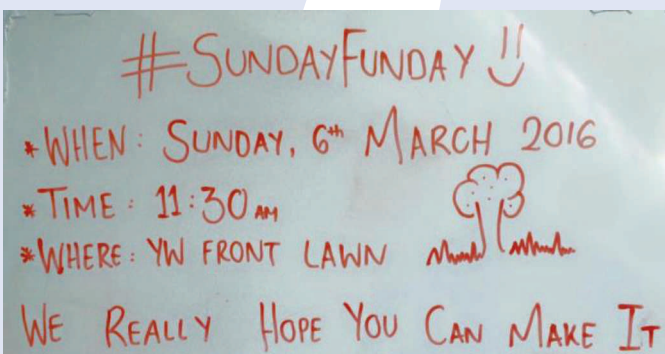 #SUNDAYFUNDAY
*WHEN: SUNDAY, 6th MARCH 2016
*TIME: 11:30 AM
*WHERE: YW FRONT LAWN
WE REALLY HOPE YOU CAN MAKE IT